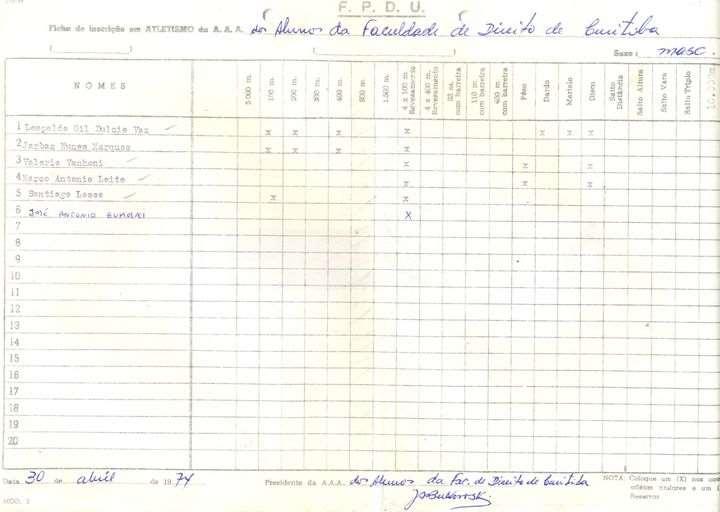 F. P. D. U.
Ficha de inscrição em ATLETISMO da A. A. A. dos Alunos da Faculdade de Direito de Curitiba
Sexo: masc.
NOMES
5.000 m.
100 m.
200 m.
300 m.
400 m.
800 m.
1.500 m.
4 x 100 m. Revesamento
4 x 400 m. Revesamento
com barreira
110 m. com barreira
400 m. com barreira
Pêso
Dardo
Martelo
Disco
Salto Distância
Salto Altura
Salto Vara
Salto Triplo
1 Leopoldo Gil Dulcio Vaz x x x x x x x
2 Jarbas Nunes Marques x x x x
3 Valerio Vanhoni x x x
4 Marco Antonio Leite x x x
5 Santiago x x
6 JOSÉ ANTONIO X
7
8
9
10
11
12
13
14
15
16
17
18
19
20
Data 30 de abril de 1974 Presidente da A.A.A. dos Alunos da Fac. de Direito de Curitiba
NOTA: Coloque um (X) nos
atletas titulares e um
Reservas
MOD. 2